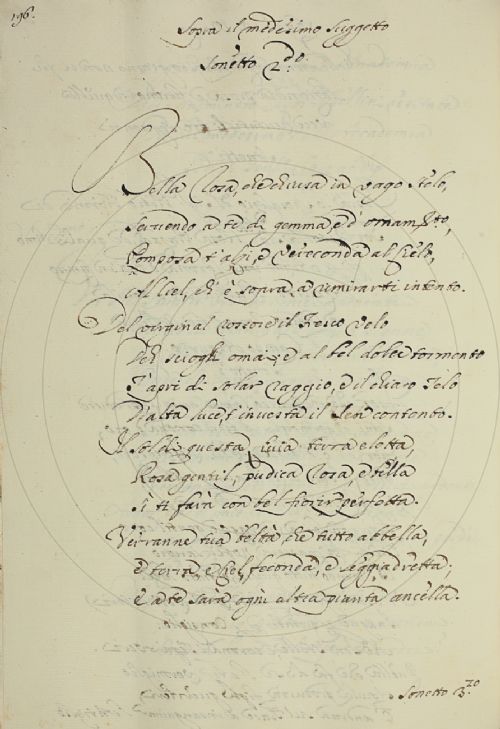 196.
Sopra il medesimo suggetto
Sonetto 2.do
Bella Rosa, che chiusa in vago stelo,
Servendo a te di gemma, e d'ornamto,
Composa t'alzi, e vereconda al Cielo,
Al Ciel, ch'è sopra a rimirarti intento.
Del virginal rossore il fresco velo
Deh sciogli omai, e al bel dolce tormento
T'apri di solar raggio, e il chiaro Telo
D'alta luce, t'investa il sen contento.
Il sol di questa terra eletta,
Rosa gentil, pudica rosa, e bella
Si ti farà con bel fiorir perfetta.
Verranne tua beltà che tutto abbella,
E terra, e Ciel, feconda, e leggiadretta;
E a te sarà ogni altra pianta ancella.
Sonetto 3.zo